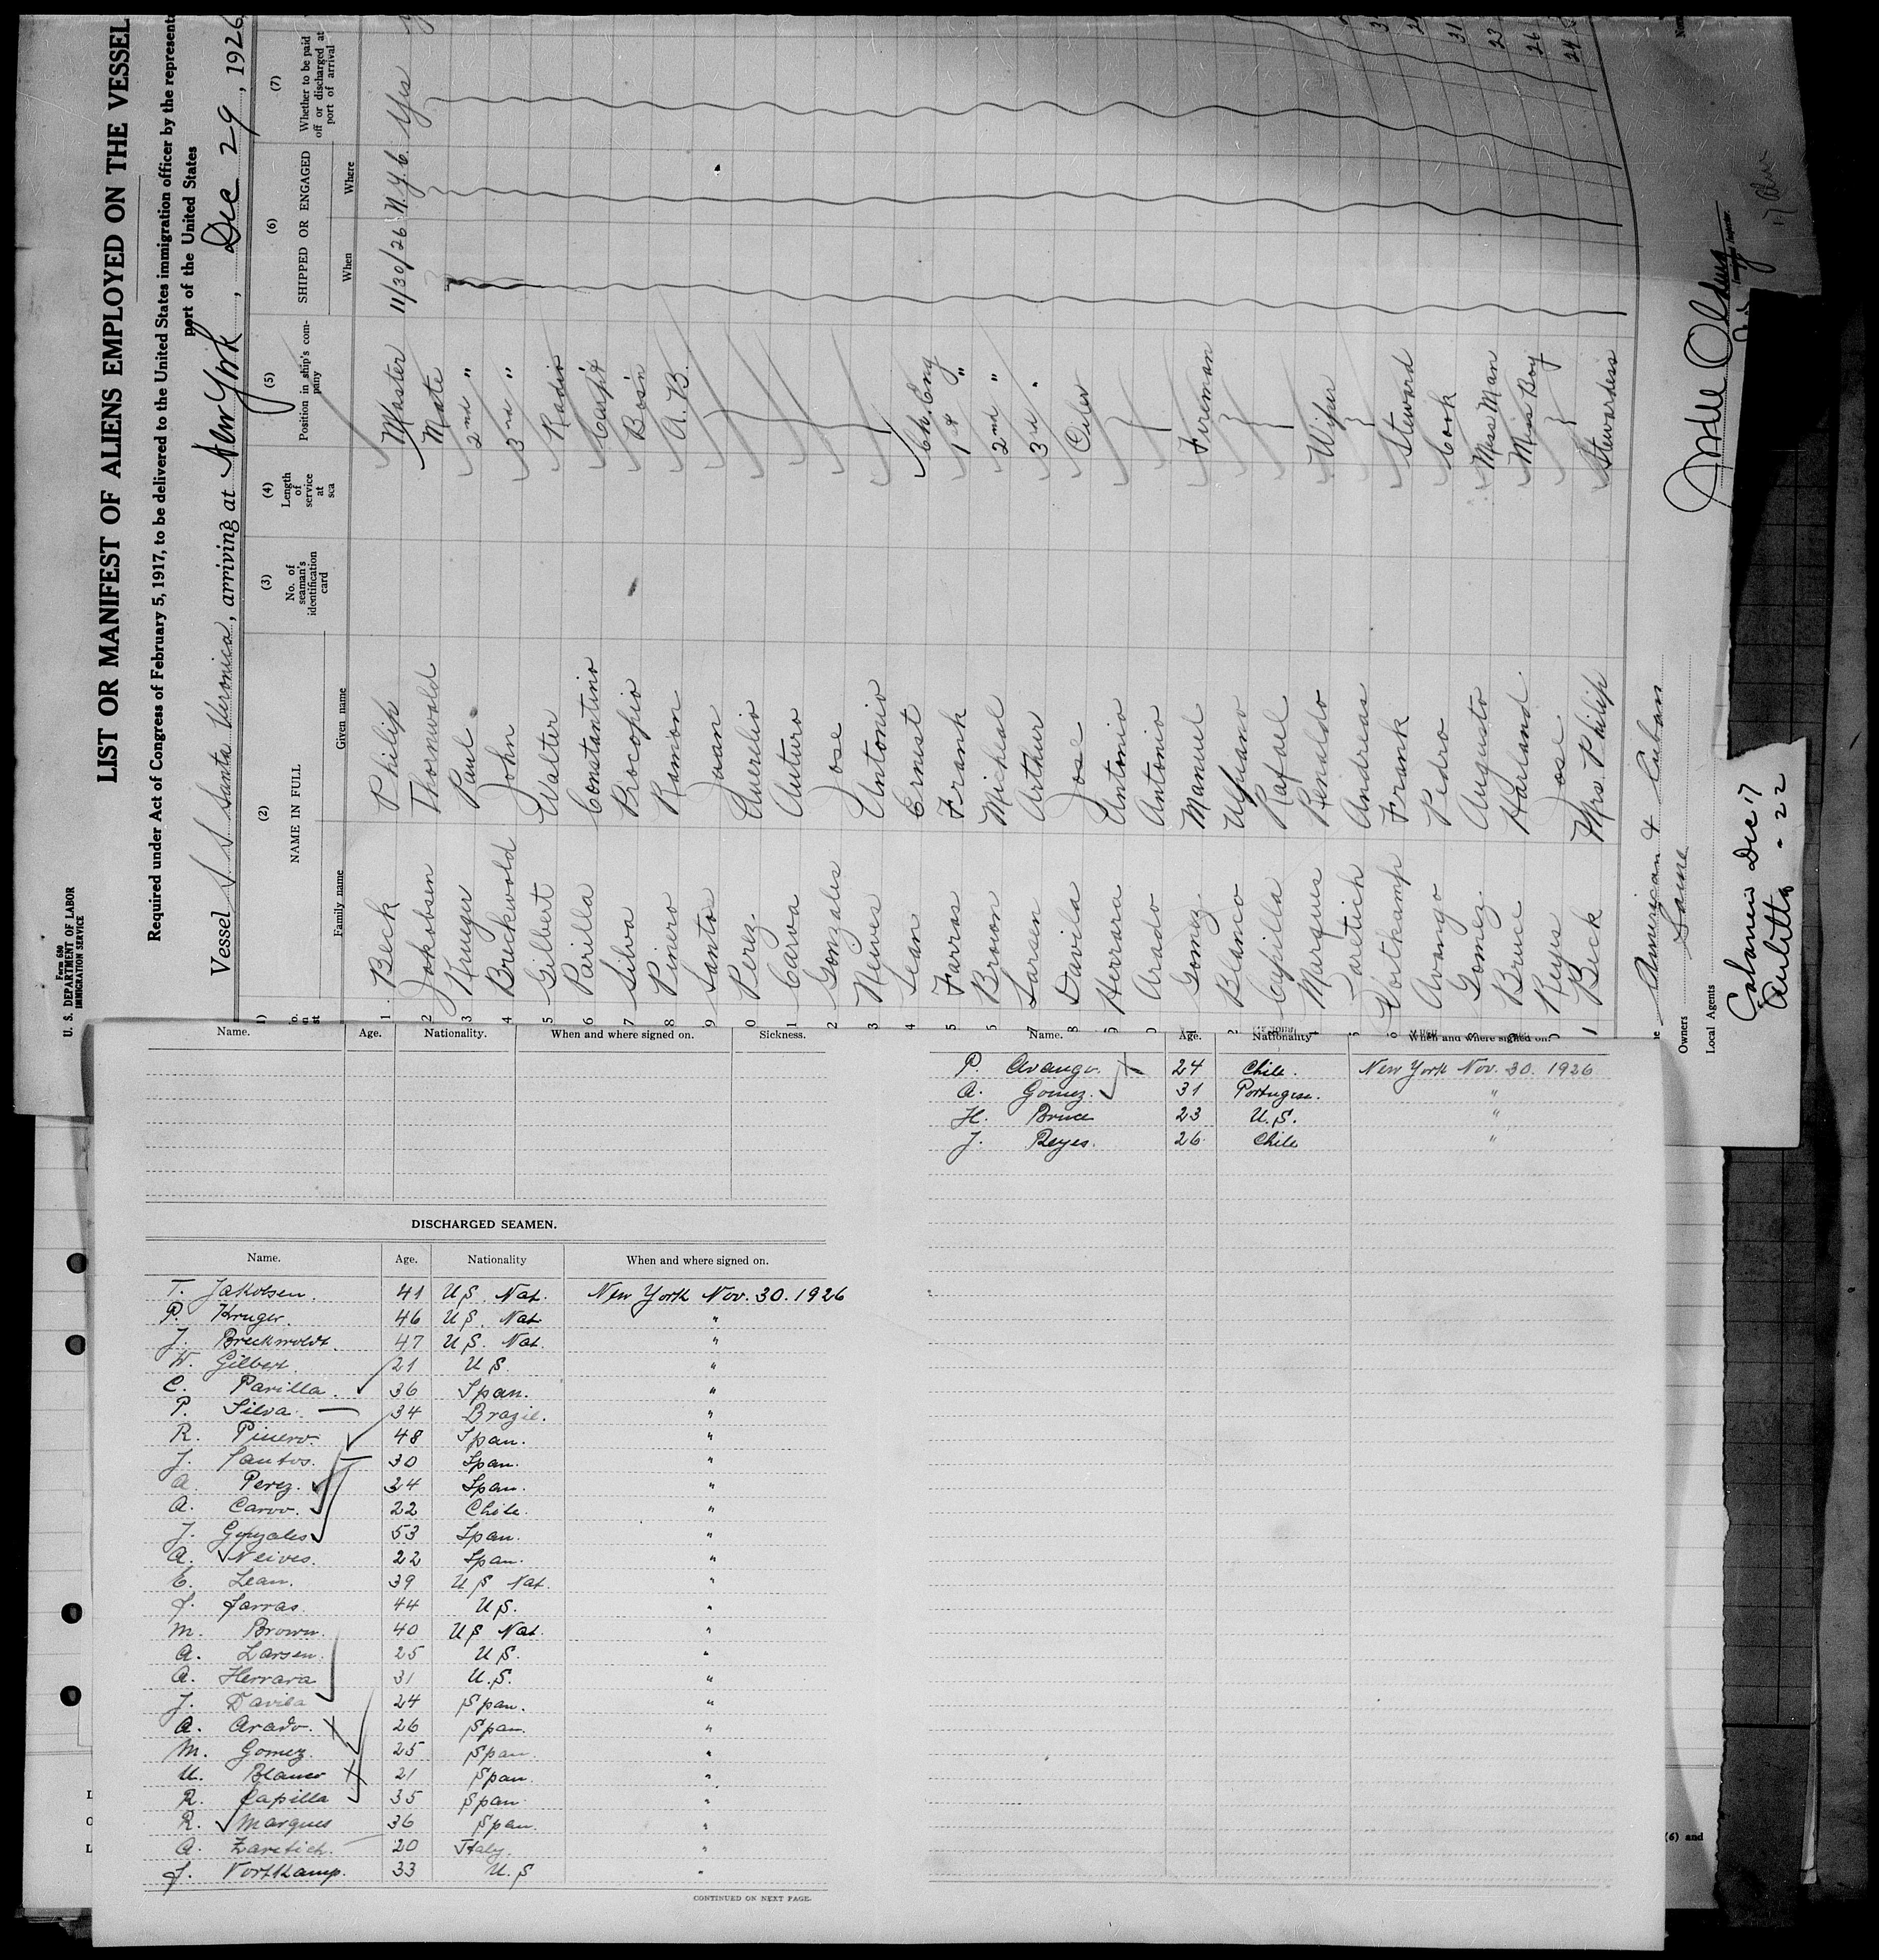 Form 680
U. S. DEPARTMENT OF LABOR
IMMIGRATION SERVICE
LIST OR MANIFEST OF ALIENS EMPLOYED ON THE VESSEL
Required under Act of Congress of February 5, 1917, to be delivered to the United States immigration officer by the represent
port of the United States
Vessel S S Santa Veronica, arriving at New York, Dec 29, 1926
(2) (3) (4) (5) (6) (7)
NAME IN FULL No. of seaman's identification card Length of service at sea Position in ship's company SHIPPED OR ENGAGED Whether to be paid off or discharged at port of arrival
Family name Given name When Where
1 Beck Philip Master 11/30/26 N.Y.C. Yes
2 Jakobsen Thornwald Mate
3 Krueger Paul 2nd "
4 Breckwold John 3rd "
5 Gilbert Walter Radio
6 Parilla Constantino Carpt
7 Silva Procopio Bos'n
8 Pinero Ramon A.B.
9 Santos Juan
0 Perez Aurelio
1 Carva Auturo
2 Gonzales Jose
3 Neives Antonio
4 Lean Ernest Ch. Eng
5 Farras Frank 1st "
6 Brown Micheal 2nd "
7 Larsen Arthur 3rd "
8 Davila Jose Oiler
9 Herrara Antonio
0 Arado Antonio
1 Gomez Manuel Fireman
2 Blanco Ulpiano
3 Capilla Rafael
4 Marques Renaldo Wiper
5 Zaretich Andreas
6 Vortkamp Frank Steward
7 Avango Pedro Cook
8 Gomez Augusto Mess Man
9 Bruce Harland Mess Boy
0 Reyes Jose
1 Beck Mrs. Philip Stewardess
American & Cuban
Owners Same
Local Agents
Colanen Dec 17
Aulitta - 22
Name. Age. Nationality. When and where signed on. Sickness.
DISCHARGED SEAMEN.
Name. Age. Nationality When and where signed on.
T. Jakobsen. 41 U S. Nat. New York Nov. 30. 1926
P. Kruger. 46 U S. Nat. "
J. Breckwoldt. 47 U S. Nat. "
W. Gilbert. 21 U S. "
C. Parilla. 36 Span. "
P. Silva. 34 Brazil. "
R. Pinero. 48 Span. "
J. Santos. 30 Span. "
A. Perez. 34 Span. "
A. Carvo. 22 Chile. "
J. Gonzales 53 Span. "
A. Neives. 22 Span. "
E. Lean. 39 U S Nat. "
F. Farras. 44 U S. "
M. Brown. 40 U S Nat. "
A. Larsen. 25 U S. "
A. Herrara 31 U.S. "
J. Davila 24 Span. "
A. Arado. 26 Span. "
M. Gomez. 25 Span. "
U. Blanco 21 Span. "
R. Capilla 35 Span. "
R. Marques 36 Span. "
A. Zaretich. 20 Italy. "
F. Vortkamp. 33 U. S "
CONTINUED ON NEXT PAGE.
Name. Age. Nationality When and where signed on.
P. Avango. 24 Chile. New York Nov. 30. 1926
A. Gomez. 31 Portugese. "
H. Bruce 23 U.S. "
J. Reyes. 26 Chile "
(6) and